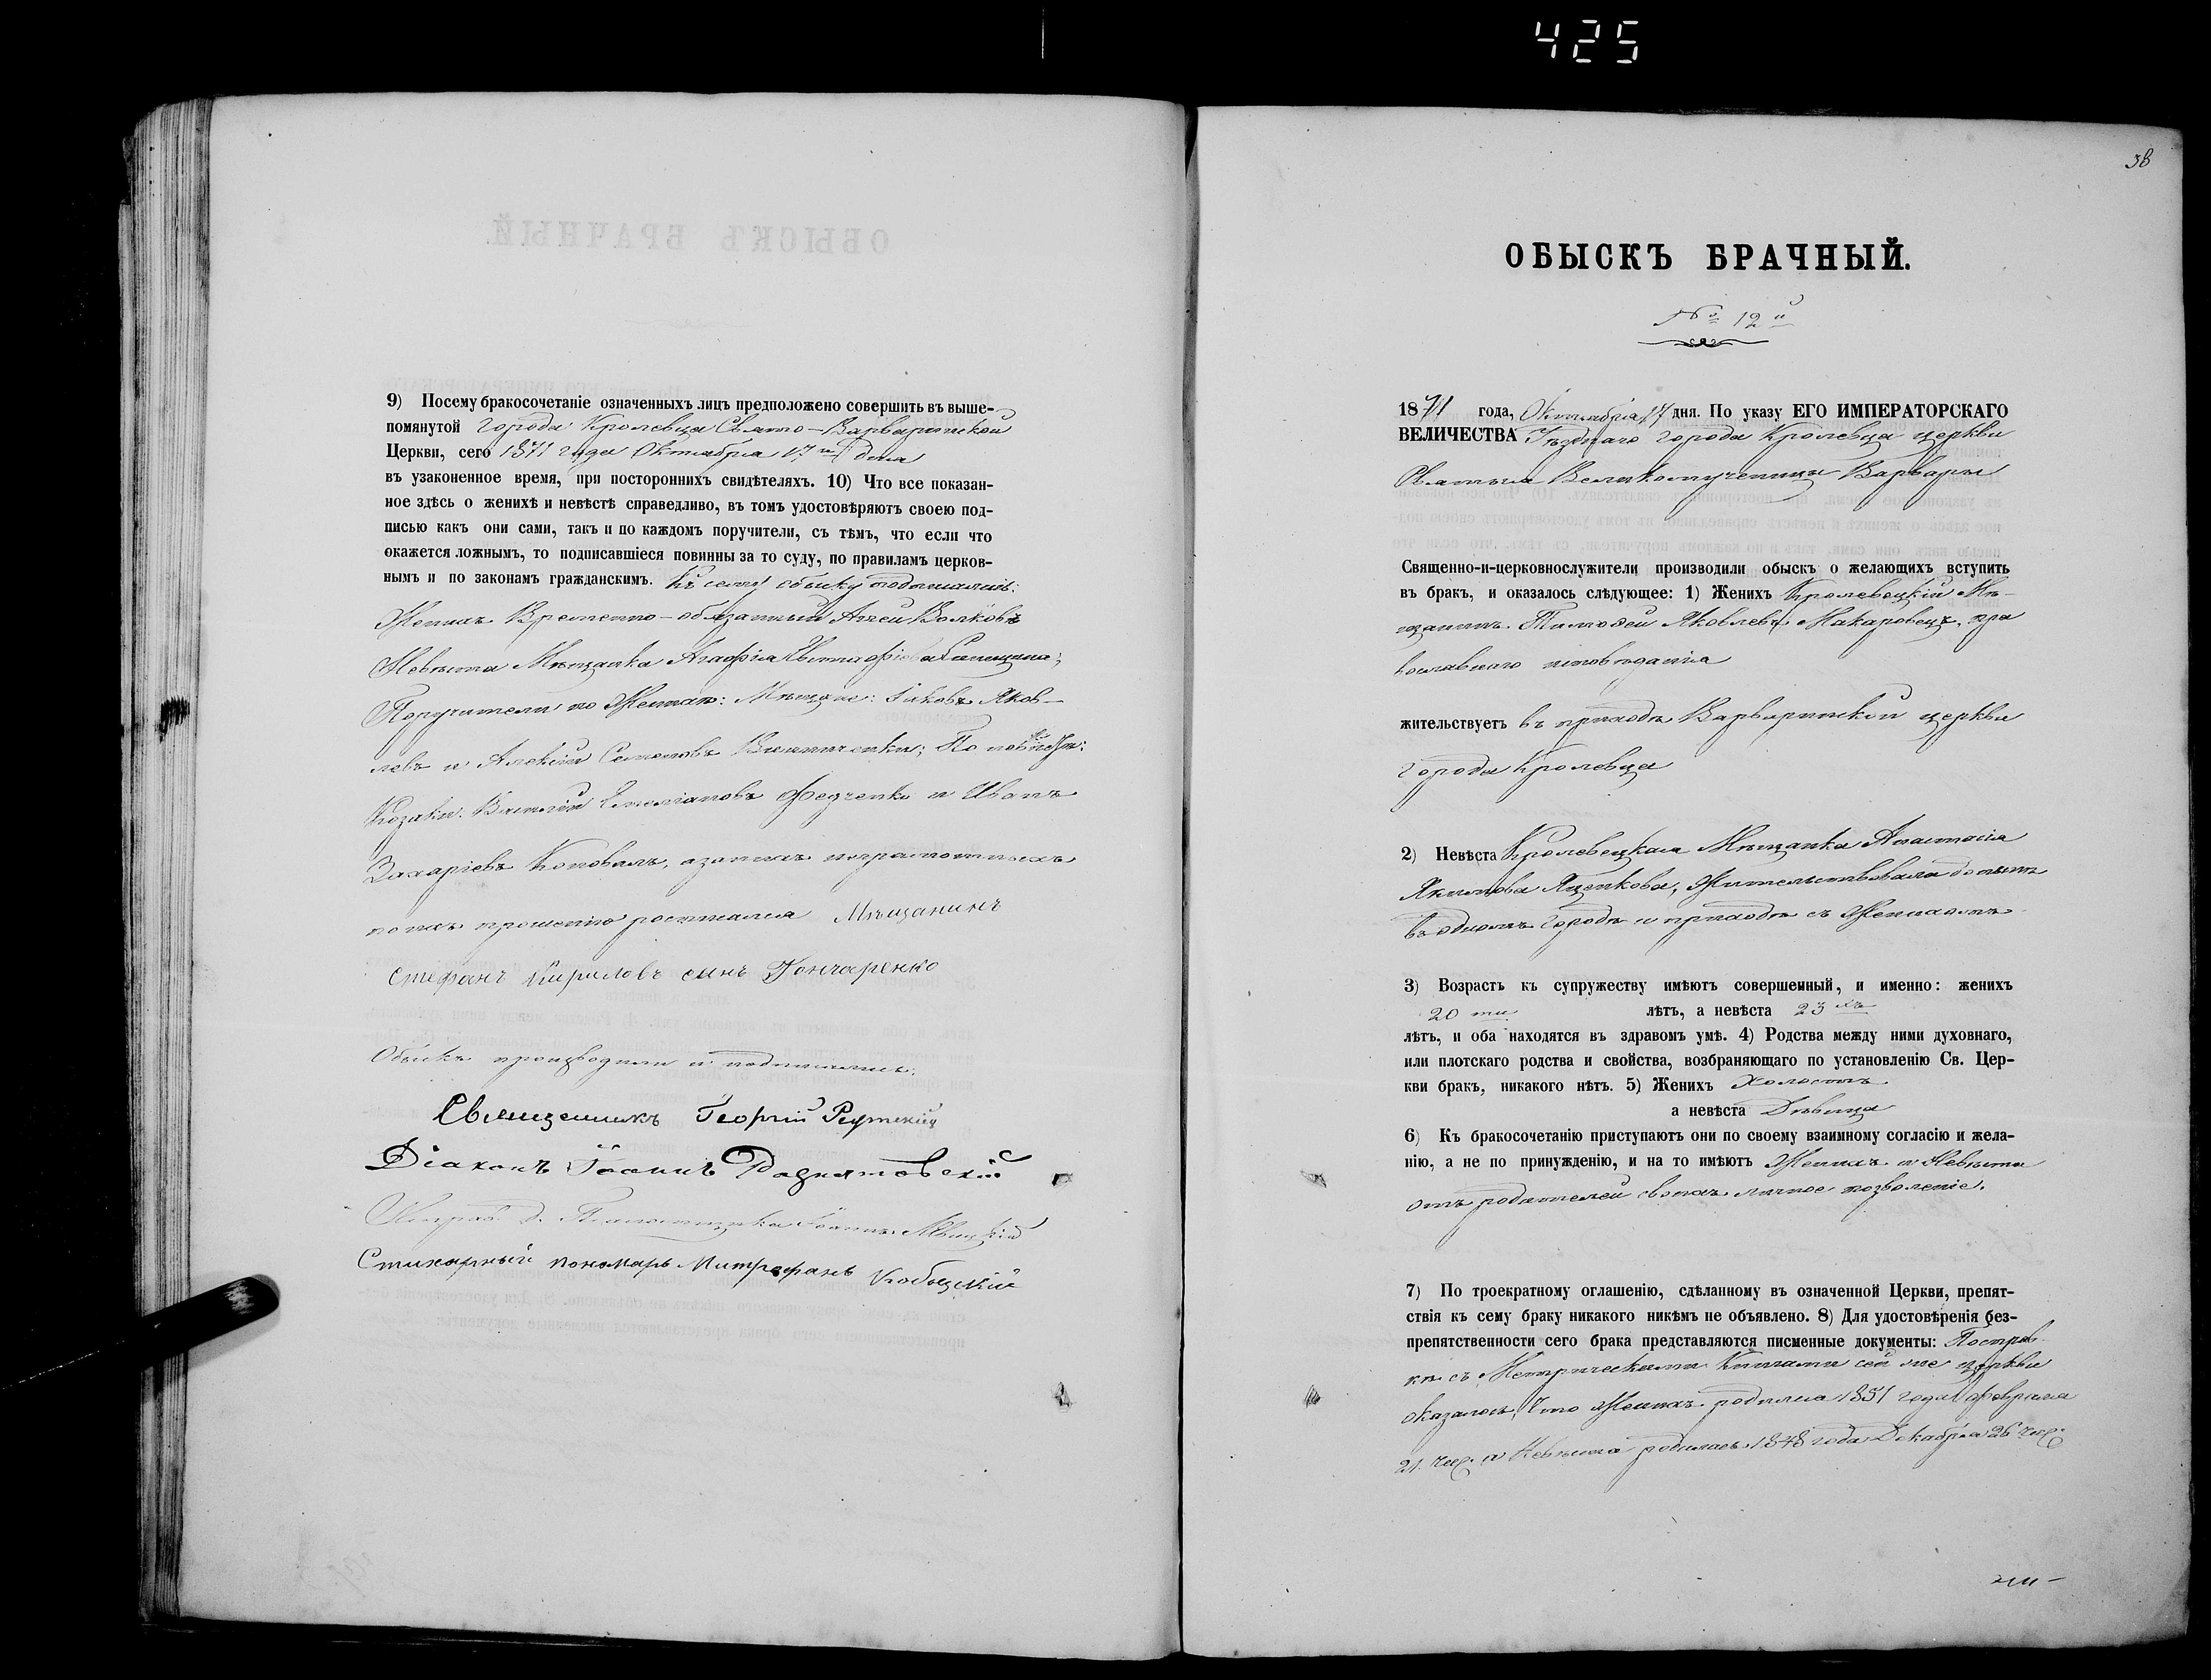 425
9) Посему бракосочетаніе означенныхъ лицъ предположено совершить въ выше-
помянутой города Кролевца Свято-Варваринской
Церкви, сего 1871 года Октября 17 дня
въ узаконенное время, при постороннихъ свидѣтеляхъ. 10) Что все показан-
ное здѣсь о женихѣ и невѣстѣ справедливо, въ томъ удостовѣряютъ своею под-
писью какъ они сами, такъ и по каждомъ поручители, съ тѣмъ, что если что
окажется ложнымъ, то подписавшіеся повинны за то суду, по правиламъ церков-
нымъ и по законамъ гражданскимъ. Къ сему обыску подписались:
Женихъ Временно-обязанный Волковъ
Невѣста Мѣщанка Агафія
Поручители по Женихѣ: Мѣщане: Іаковъ Яков-
левъ и Алексій Семеновъ По невѣстѣ:
Козаки: Василій Емеліановъ Федченко и Иванъ
Захаріевъ Коновалъ, а за нихъ неграмотныхъ
по ихъ прошенію росписался Мѣщанинъ
Стефанъ Кириловъ сынъ Гончаренко
Обыскъ производили и подписались:
Священникъ Георгій
Діаконъ Іоаннъ
д. Іоаннъ
Стихарный пономарь Митрофанъ
38
ОБЫСКЪ БРАЧНЫЙ.
№ 12й
1871 года, Октября 17 дня. По указу ЕГО ИМПЕРАТОРСКАГО
ВЕЛИЧЕСТВА Уѣзднаго города Кролевца церкви
Святыя Великомученицы Варвары
Священно-и-церковнослужители производили обыскъ о желающихъ вступить
въ бракъ, и оказалось слѣдующее: 1) Женихъ Кролевецкій Мѣ-
щанинъ Тимофей Яковлевъ Макаровецъ, пра
вославнаго исповѣданія
жительствуетъ въ приходѣ Варваринской церкви
города Кролевца
2) Невѣста Кролевецкая Мѣщанка Анастасія
Якимова Яценкова, жительствовала донынѣ
въ одномъ городѣ и приходѣ съ Женихомъ
3) Возрастъ къ супружеству имѣютъ совершенный, и именно: женихъ
20 ти лѣтъ, а невѣста 23 хъ
лѣтъ, и оба находятся въ здравомъ умѣ. 4) Родства между ними духовнаго,
или плотскаго родства и свойства, возбраняющаго по установленію Св. Цер-
кви бракъ, никакого нѣтъ. 5) Женихъ Холостъ
а невѣста Дѣвица
6) Къ бракосочетанію приступаютъ они по своему взаимному согласію и жела-
нію, а не по принужденію, и на то имѣютъ Женихъ и Невѣста
отъ родителей своихъ личное позволеніе.
7) По троекратному оглашенію, сдѣланному въ означенной Церкви, препят-
ствія къ сему браку никакого никѣмъ не объявлено. 8) Для удостовѣренія без-
препятственности сего брака представляются писменные документы: По справ-
кѣ съ Метрическими Книгами сей же церкви
оказалось, что Женихъ родился 1851 года Февраля
21 чис. а Невѣста родилась 1848 года Декабря 26 чис.